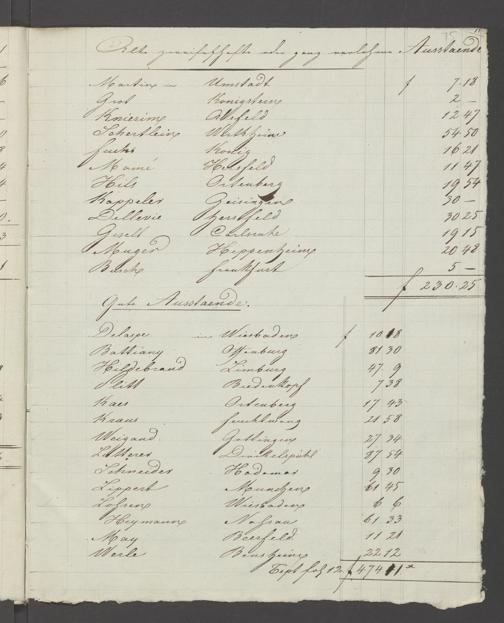 Alte zweifelhafte oder ganz verlohrne Ausstaende
Martin in Umstadt f 7.18
Grot Konigstein 2 —
Knierim Alsfeld 12 47
Schertlein Wertheim 54 50
Fuchs Konig 16 21
Mamé Hersfeld 11 47
Hils Ortenberg 19 34
Kappeler Geisingen 30 —
Dellevie Hersfeld 30 25
Gisell Carlsruhe 19 15
Muger Heppenheim 20 48
Frankfurt 5 —
f 230.25
Gute Ausstaende.
Delaspe in Wiesbaden f 10 18
Battiany Offenburg 81 30
Hildebrand Limburg 47 9
Biedenkopf 7 38
Kaes Ortenberg 17 43
Kraus 21 58
Weigand Gottingen 27 34
Litterer Dinkelspühl 37 54
Schneider Hadamar 9 30
Lippert Munchen 61 45
Wiesbaden 6 6
Heymann Nassau 61 33
May Beerfeld 11 21
Werle Bensheim 22 12
fol 12. f 474 11